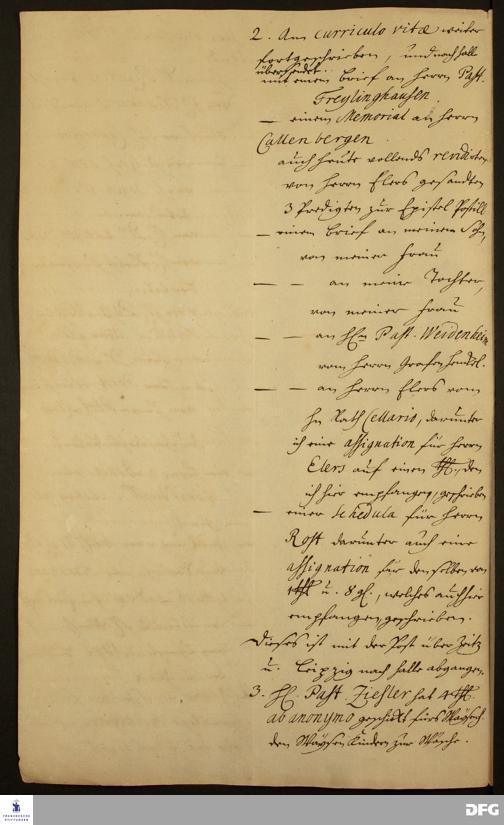 2. Am curriculo vitæ weiter
fortgeschrieben, und nach Halle
übersendet
mit einem brief an Herrn Past.
Freylinghausen.
— einem Memorial an Herrn
Callenbergen
auch heute vollends revidirten
von Herrn Elers gesandten
3 Predigten zur Epistel Postill
— einem brief an meinen Sohn,
von meiner Frau
— — an meine Tochter,
von meiner Frau
— — an HEn Past. Weidenheim
vom Herrn Grafen Henckel.
— — an Herrn Elers vom
Hn Rath Cellario, darunter
ich eine assignation für Herrn
Elers auf einen , den
ich hier empfangen, geschrieben
— einer schedula für Herrn
Rost darunter auch eine
assignation für denselben von
u. 8 gl., welches auch hier
empfangen geschrieben.
Dieses ist mit der Post über Zeitz
u. Leipzig nach Halle abgangen.
3. HE. Past. Ziegler hat
ab anonymo geschickt fürs
den Waysen Kindern zur Wäsche.
FRANCKESCHE
STIFTUNGEN
DFG